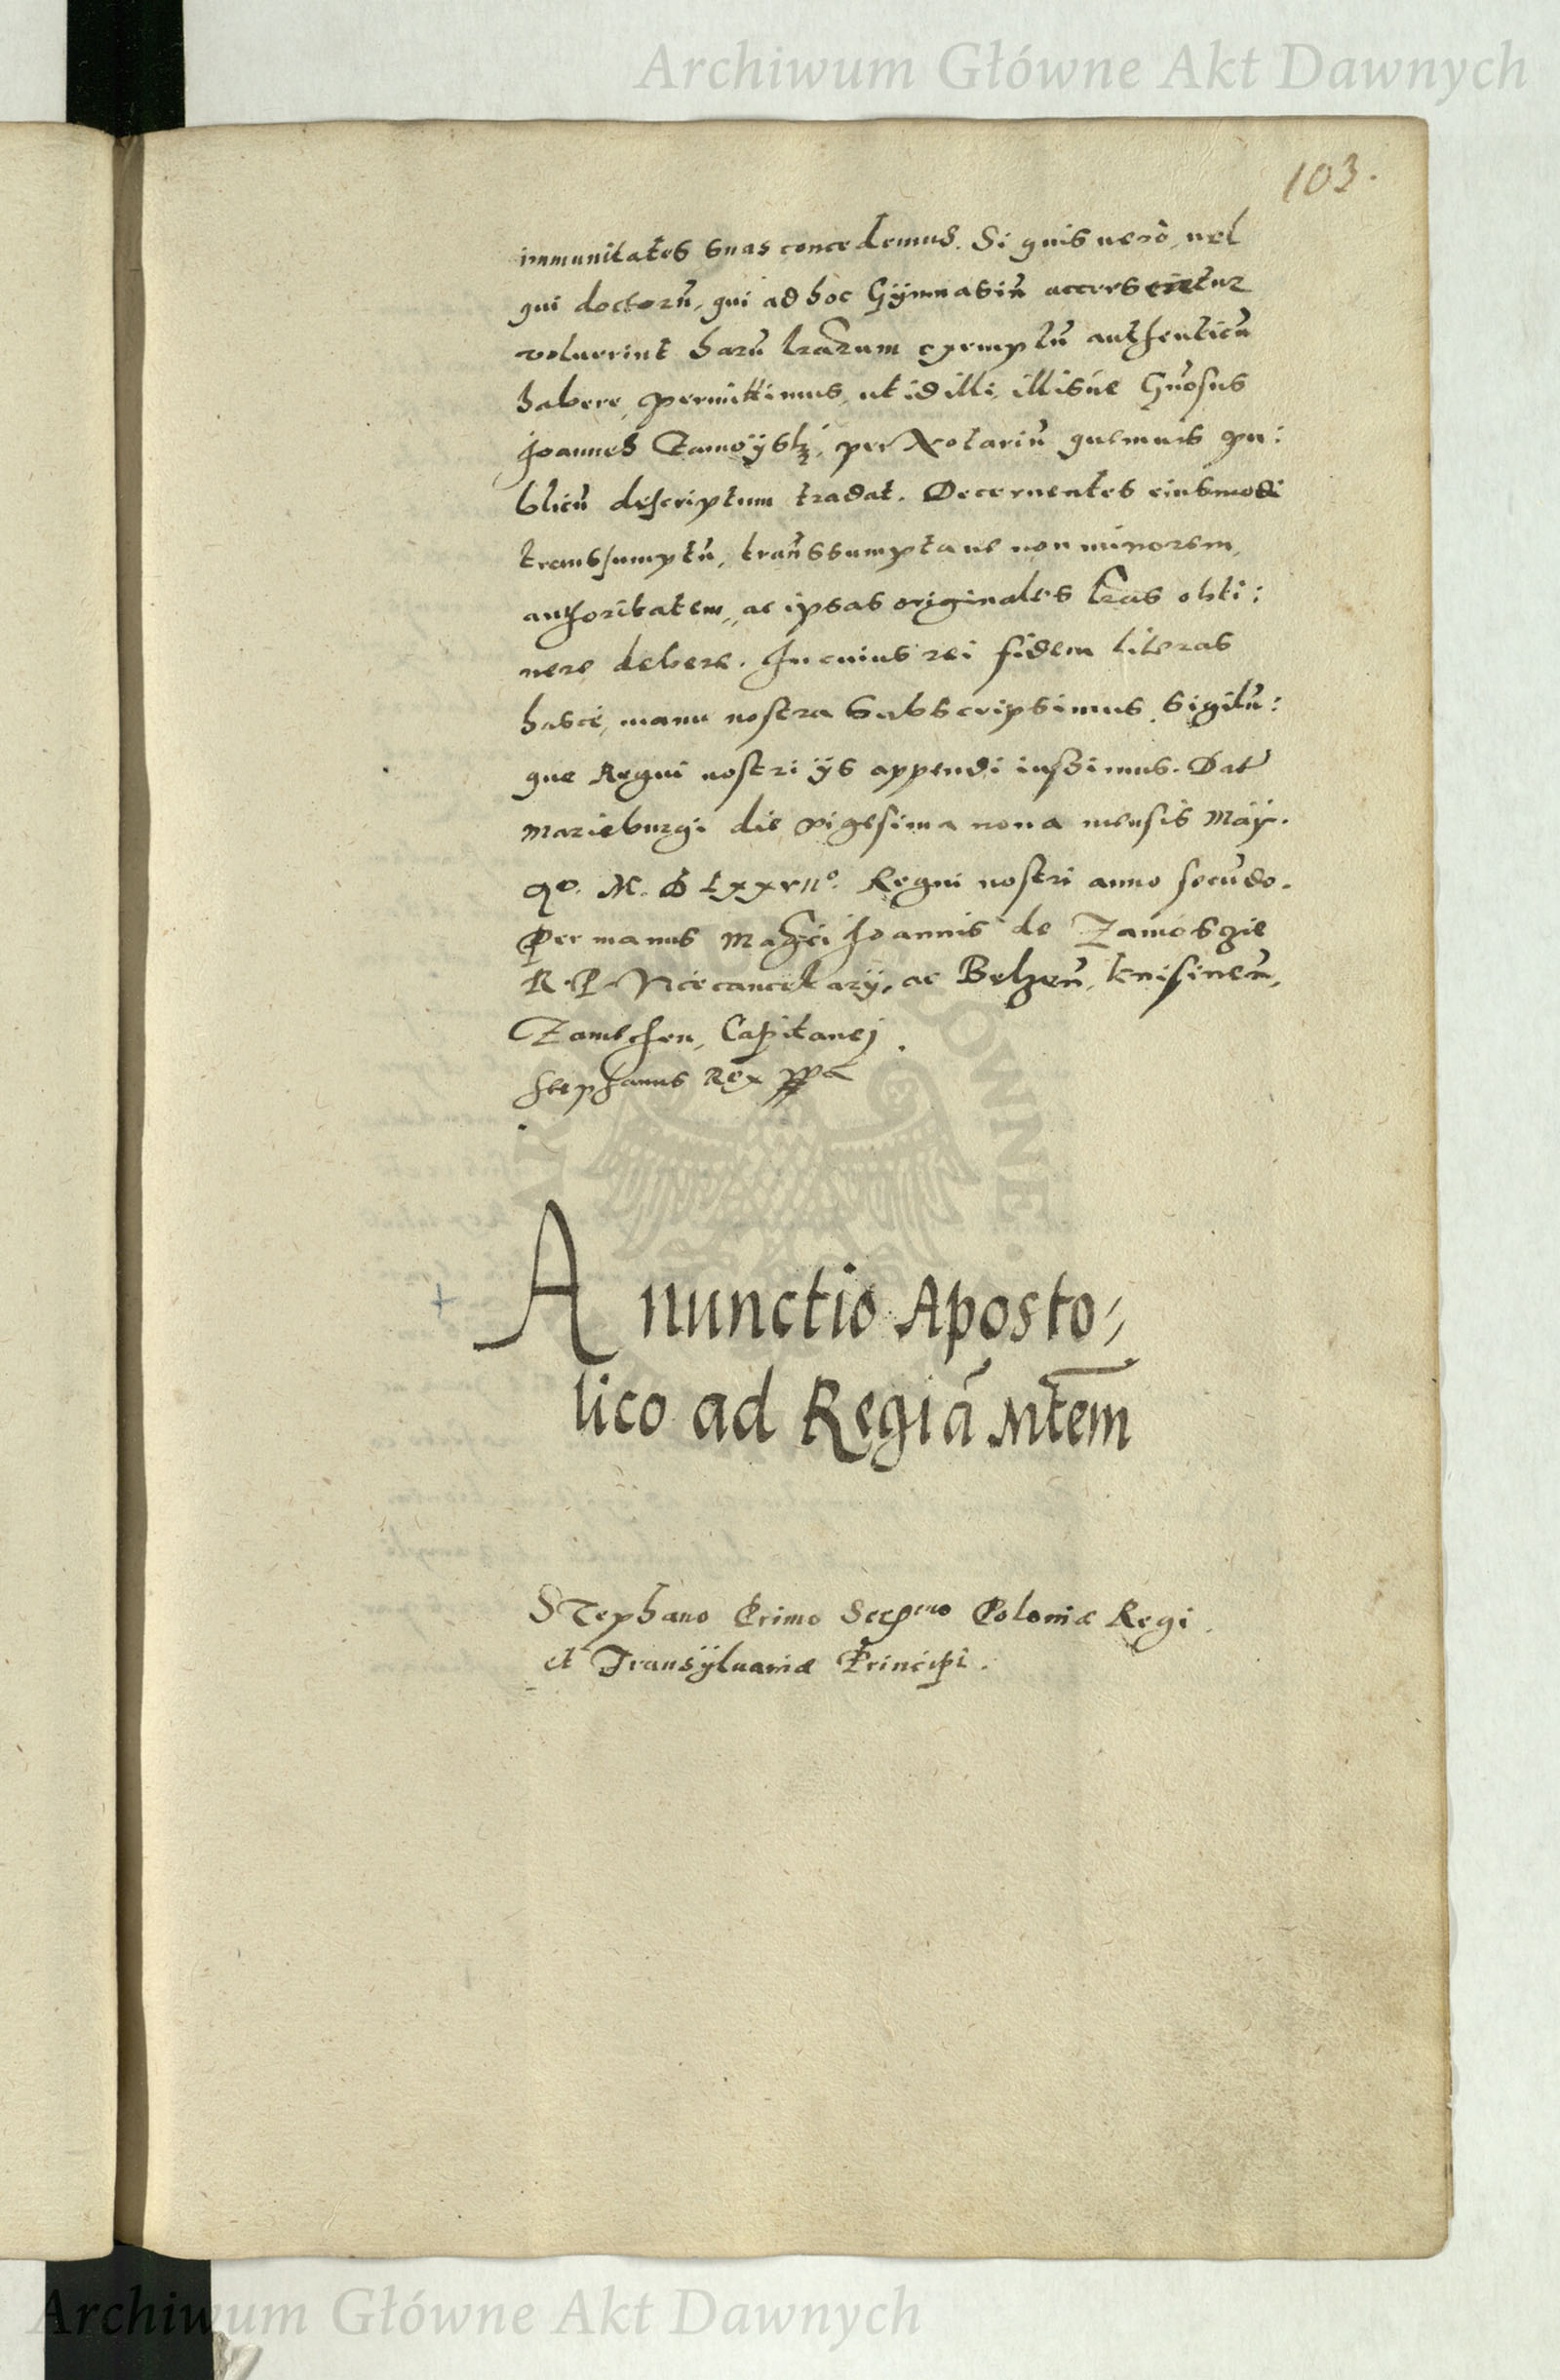 Archiwum Główne Akt Dawnych
103.
immunitates suas concedemus. Si quis uerò, uel
qui doctorũ, qui ad hoc Gÿmnasiũ accersetur
voluerint harũ lrãrum exemplũ authenticũ
habere, permittimus, ut id illi, illisúe Gñosus
Joannes Zamoÿski, per Notariũ quemuis pu:
blicũ descriptum tradat. Decernentes eiusmodi
transsumptũ, transsumptaue non minorem,
authoritatem, ac ipsas originales lras obti:
nere debere. In cuius rei fidem literas
hasce, manu nostra subscripsimus, sigilũ:
que Regni nostri ijs appendi iussimus. Dat
Marieburgi die vigesima nona mensis Maÿ.
Aº. M. D LXXVIIº. Regni nostri anno secũdo.
Per manus Mafci Joannis de Zamósczie
R. P. Vicecancellarij, ac Belzeñ, knisineñ,
Zamechen, Capitanej.
Stephanus Rex
A nunctio Aposto,
lico ad Regiã Mtem
STephano Primo Serᵐᵒ Poloniæ Regi
et Transÿluaniæ Principi.
ARCHIWUM GŁÓWNE
Archiwum Główne Akt Dawnych